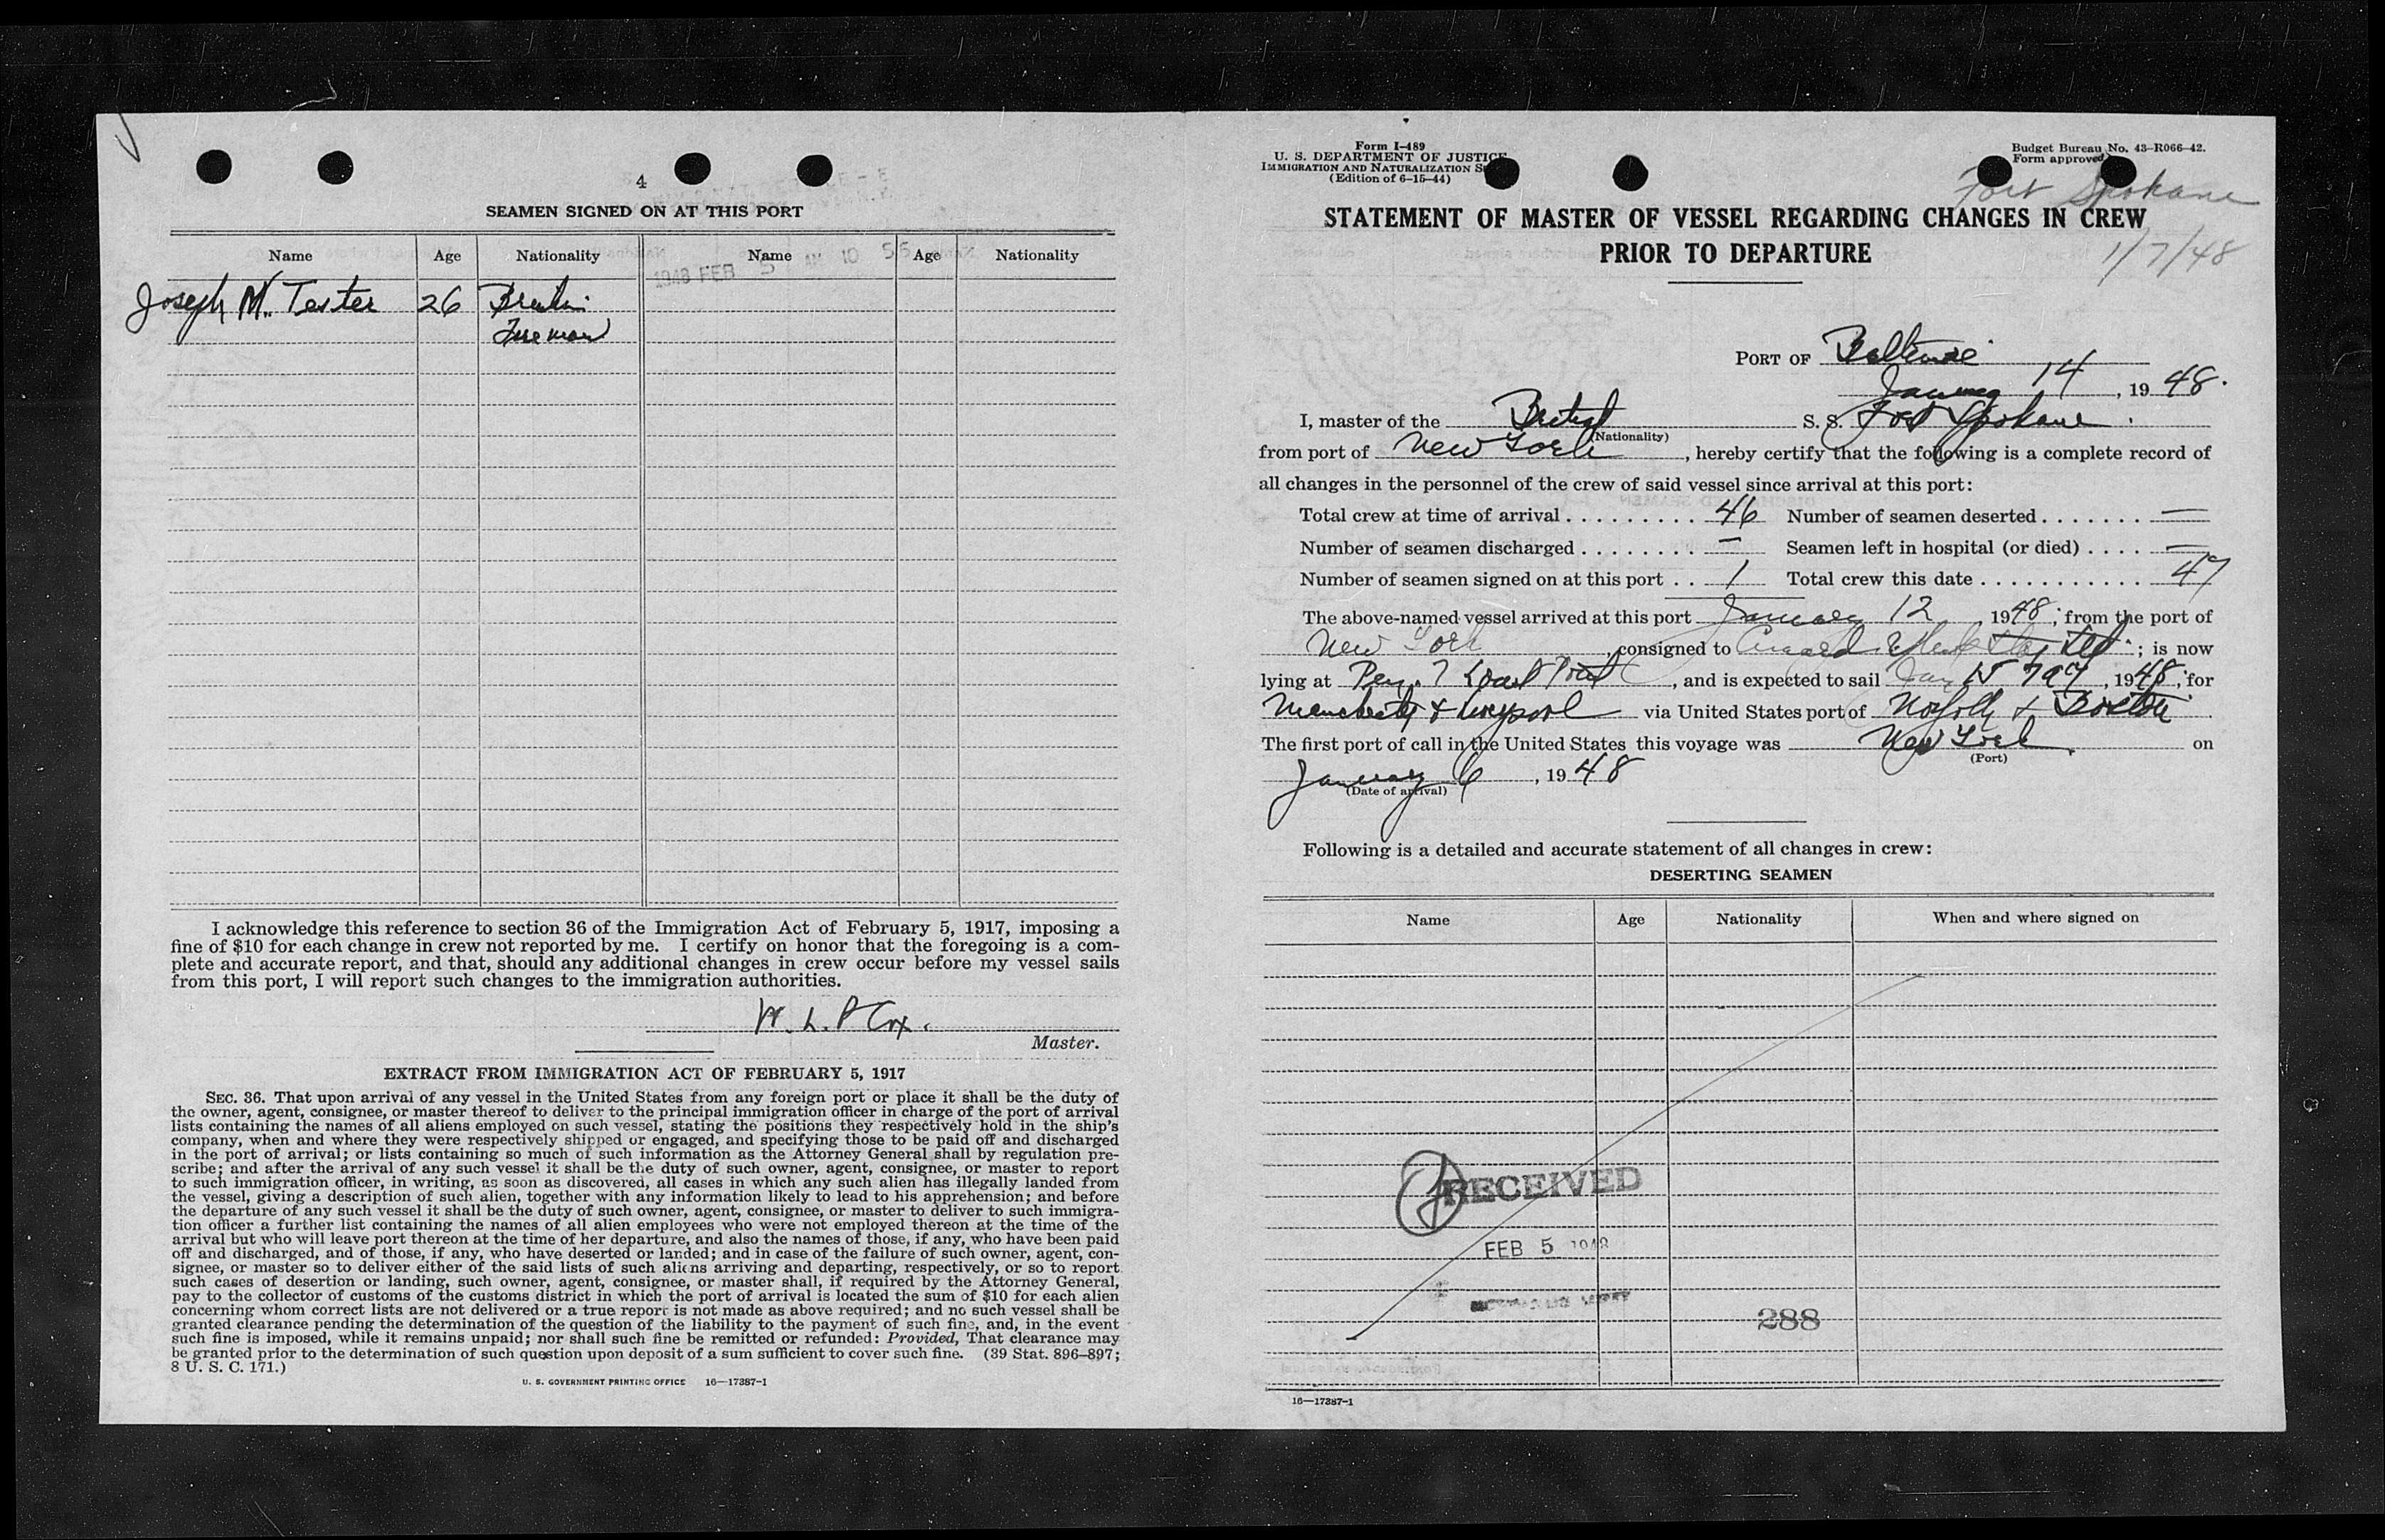 4
SEAMEN SIGNED ON AT THIS PORT
Name Age Nationality Name Age Nationality
1948 FEB 5 AM 10 55
Joseph M. Tester 26 British
Fireman
I acknowledge this reference to section 36 of the Immigration Act of February 5, 1917, imposing a
fine of $10 for each change in crew not reported by me. I certify on honor that the foregoing is a com-
plete and accurate report, and that, should any additional changes in crew occur before my vessel sails
from this port, I will report such changes to the immigration authorities.
W. L. P Cox.
Master.
EXTRACT FROM IMMIGRATION ACT OF FEBRUARY 5, 1917
SEC. 36. That upon arrival of any vessel in the United States from any foreign port or place it shall be the duty of
the owner, agent, consignee, or master thereof to deliver to the principal immigration officer in charge of the port of arrival
lists containing the names of all aliens employed on such vessel, stating the positions they respectively hold in the ship's
company, when and where they were respectively shipped or engaged, and specifying those to be paid off and discharged
in the port of arrival; or lists containing so much of such information as the Attorney General shall by regulation pre-
scribe; and after the arrival of any such vessel it shall be the duty of such owner, agent, consignee, or master to report
to such immigration officer, in writing, as soon as discovered, all cases in which any such alien has illegally landed from
the vessel, giving a description of such alien, together with any information likely to lead to his apprehension; and before
the departure of any such vessel it shall be the duty of such owner, agent, consignee, or master to deliver to such immigra-
tion officer a further list containing the names of all alien employees who were not employed thereon at the time of the
arrival but who will leave port thereon at the time of her departure, and also the names of those, if any, who have been paid
off and discharged, and of those, if any, who have deserted or landed; and in case of the failure of such owner, agent, con-
signee, or master so to deliver either of the said lists of such aliens arriving and departing, respectively, or so to report
such cases of desertion or landing, such owner, agent, consignee, or master shall, if required by the Attorney General,
pay to the collector of customs of the customs district in which the port of arrival is located the sum of $10 for each alien
concerning whom correct lists are not delivered or a true report is not made as above required; and no such vessel shall be
granted clearance pending the determination of the question of the liability to the payment of such fine, and, in the event
such fine is imposed, while it remains unpaid; nor shall such fine be remitted or refunded: Provided, That clearance may
be granted prior to the determination of such question upon deposit of a sum sufficient to cover such fine. (39 Stat. 896–897;
8 U. S. C. 171.)
U. S. GOVERNMENT PRINTING OFFICE 16—17387-1
Form I-489
U. S. DEPARTMENT OF JUSTICE
IMMIGRATION AND NATURALIZATION S
(Edition of 6-15-44)
Budget Bureau No. 43-R066-42.
Form approved
Fort Spokane
STATEMENT OF MASTER OF VESSEL REGARDING CHANGES IN CREW
PRIOR TO DEPARTURE
1/7/48
PORT OF Baltimore
January 14, 19 48.
I, master of the British S. S. Fort Spokane.
(Nationality)
from port of New York, hereby certify that the following is a complete record of
all changes in the personnel of the crew of said vessel since arrival at this port:
Total crew at time of arrival . . . . . . . . . 46 Number of seamen deserted . . . . . . . —
Number of seamen discharged . . . . . . . . — Seamen left in hospital (or died) . . . . —
Number of seamen signed on at this port . . 1 Total crew this date . . . . . . . . . . . . 47
The above-named vessel arrived at this port January 12, 1948; from the port of
New York, consigned to Cunard White Star Ltd.; is now
lying at Pier 7 Locust Point, and is expected to sail Jan 15, 1948; for
Manchester & Liverpool via United States port of Norfolk & Boston.
The first port of call in the United States this voyage was New York on
(Port)
January 6, 19 48
(Date of arrival)
Following is a detailed and accurate statement of all changes in crew:
DESERTING SEAMEN
Name Age Nationality When and where signed on
RECEIVED
FEB 5 1948
288
16—17387-1